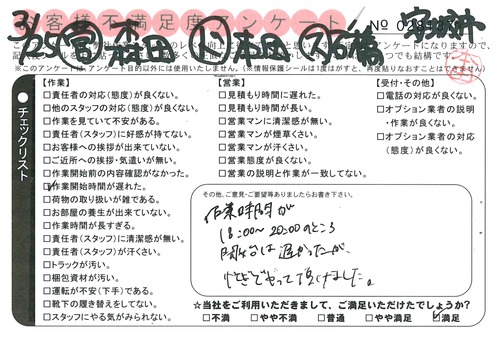 お客様不満足度アンケート
№ 02
3/25 森田 本田 橋
※このアンケートは アンケート目的以外には使用いたしません。(※情報保護シールは1度はがすと、再度貼りなおすことはできません)
チェックリスト
【作業】
□責任者の対応(態度)が良くない。
□他のスタッフの対応(態度)が良くない。
□作業を見ていて不安がある。
□責任者(スタッフ)に好感が持てない。
□お客様への挨拶が出来ていない。
□ご近所への挨拶・気遣いが無い。
□作業開始前の内容確認がなかった。
☑作業開始時間が遅れた。
□荷物の取り扱いが雑である。
□お部屋の養生が出来ていない。
□作業時間が長すぎる。
□責任者(スタッフ)に清潔感が無い。
□責任者(スタッフ)が汗くさい。
□トラックが汚い。
□梱包資材が汚い。
□運転が不安(下手)である。
□靴下の履き替えをしてない。
□スタッフにやる気がみられない。
【営業】
□見積もり時間に遅れた。
□見積もり時間が長い。
□営業マンに清潔感が無い。
□営業マンが煙草くさい。
□営業マンが汗くさい。
□営業態度が良くない。
□営業の説明と作業が一致してない。
【受付・その他】
□電話の対応が良くない。
□オプション業者の説明
・作業が良くない。
□オプション業者の対応
(態度)が良くない。
その他、ご意見・ご要望等ありましたらお書き下さい。
作業時間が
18:00〜20:00のところ
開始は遅かったが、
やって頂けました。
☆当社をご利用いただきまして、ご満足いただけたでしょうか?
□不満 □やや不満 □普通 □やや満足 ☑満足